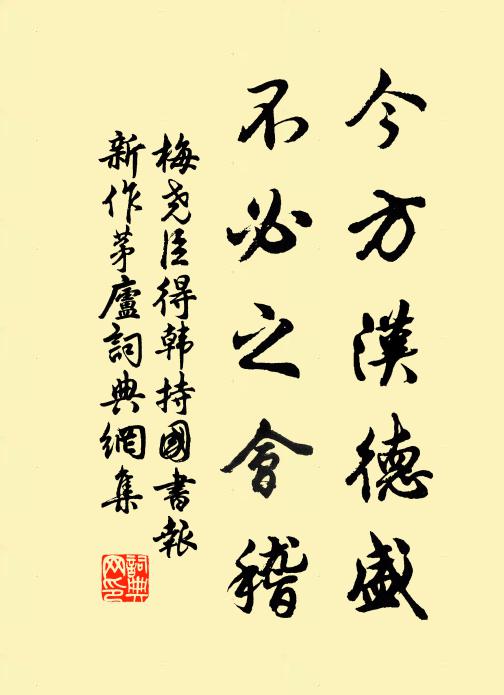 今方漢德盛
不必之會稽
梅尧臣得韩持國書報
新作茅廬詞典網集
詞典
网印